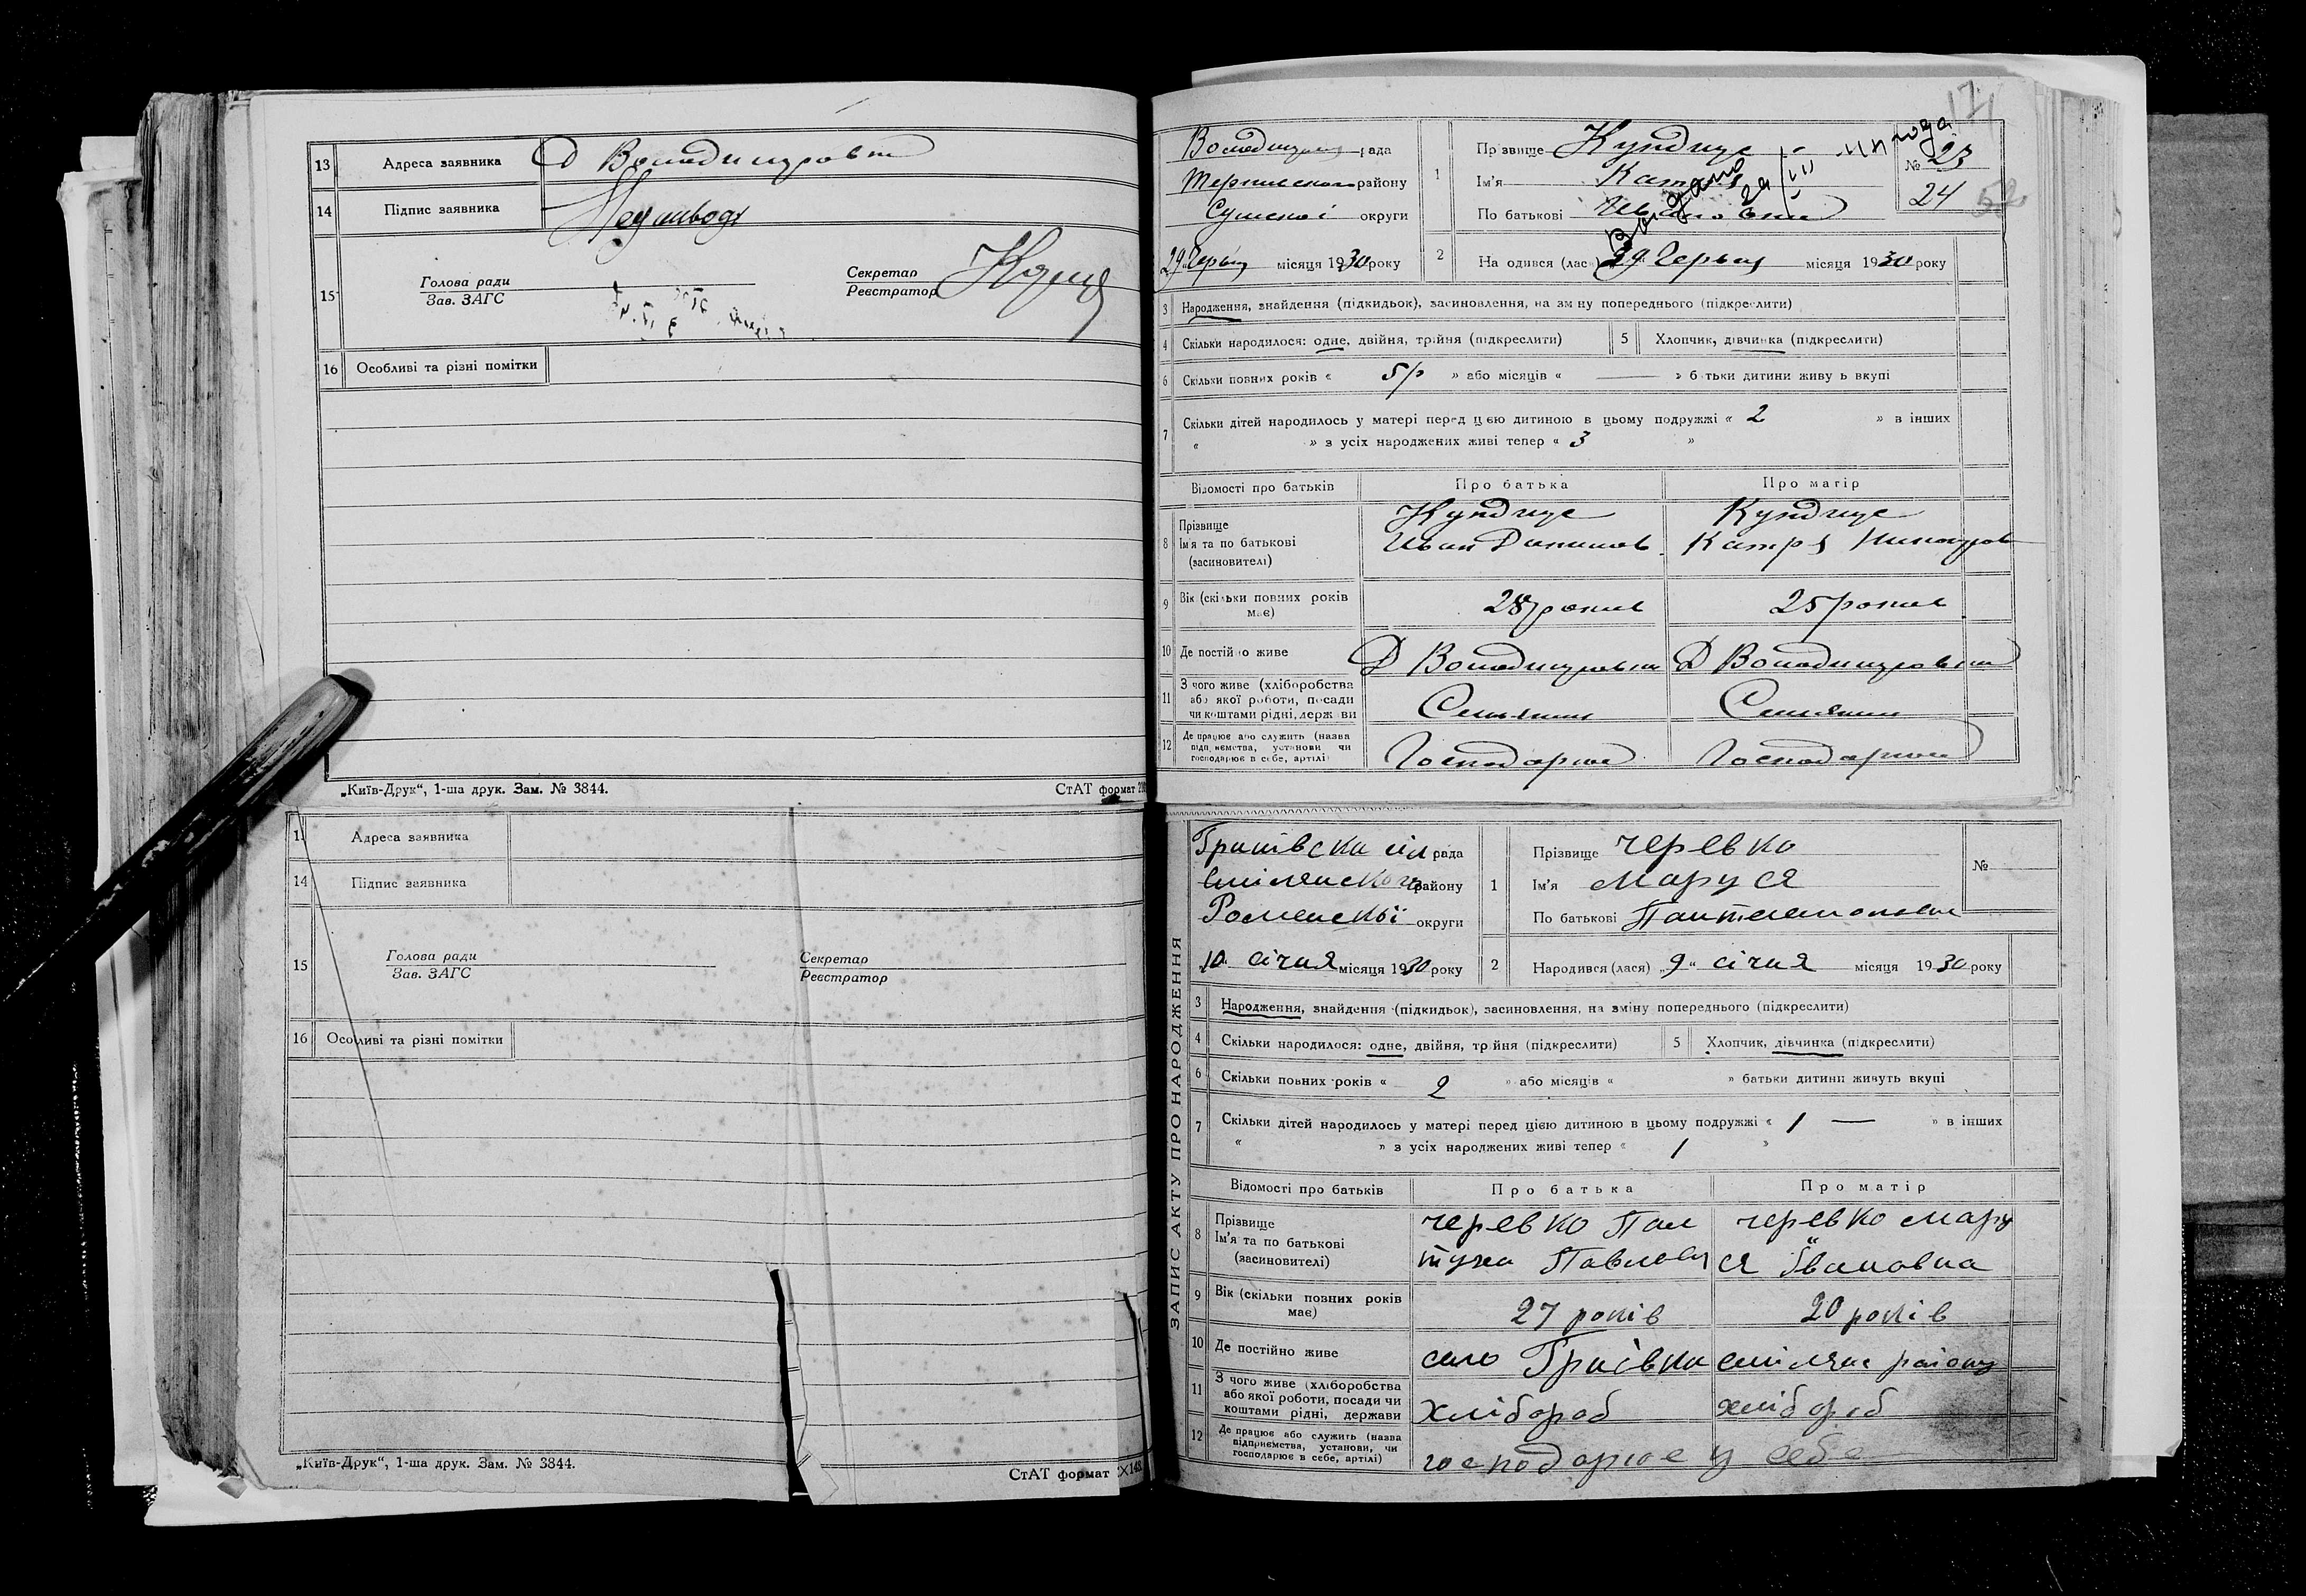 13 Адреса заявника Д Володимировка
14 Підпис заявника
15 Голова ради
Зав. ЗАГС
Секретар
Реєстратор
16 Особливі та різні помітки
„Київ-Друк“, 1-ша друк. Зам. № 3844.
СтАТ формат
17
рада
району
Сумської округи
29 Червня місяця 1930 року
1 Прізвище
Ім'я Катря
По батькові Ивановна
№ 23
24
Видано
2 Народився (лась) 29 Червня місяця 1930 року
3 Народження, знайдення (підкидьок), засиновлення, на зміну попереднього (підкреслити)
4 Скільки народилося: одне, двійня, трійня (підкреслити)
5 Хлопчик, дівчинка (підкреслити)
6 Скільки повних років « 5 р » або місяців « — » батьки дитини живуть вкупі
7 Скільки дітей народилось у матері перед цією дитиною в цьому подружжі « 2 » в інших
« » з усіх народжених живі тепер « 3 »
Відомості про батьків Про батька Про матір
8 Прізвище
Ім'я та по батькові Иван Катря
(засиновителі)
9 Вік (скільки повних років має) 28 років 25 років
10 Де постійно живе Д Володимировка Д Володимировка
11 З чого живе (хліборобства
або якої роботи, посади
чи коштами рідні, держави
12 Де працює або служить (назва
підприємства, установи чи
господарює в себе, артілі)
1 Адреса заявника
14 Підпис заявника
15 Голова ради
Зав. ЗАГС
Секретар
Реєстратор
16 Особливі та різні помітки
„Київ-Друк“, 1-ша друк. Зам. № 3844.
СтАТ формат
ЗАПИС АКТУ ПРО НАРОДЖЕННЯ
рада
району
Роменської округи
10 січня місяця 1930 року
1 Прізвище Черевко
Ім'я Маруся
По батькові Пантелемоновна
№
2 Народився (лася) „9“ січня місяця 1930 року
3 Народження, знайдення (підкидьок), засиновлення, на зміну попереднього (підкреслити)
4 Скільки народилося: одне, двійня, трійня (підкреслити)
5 Хлопчик, дівчинка (підкреслити)
6 Скільки повних років « 2 » або місяців « » батьки дитини живуть вкупі
7 Скільки дітей народилось у матері перед цією дитиною в цьому подружжі « 1 — » в інших
« » з усіх народжених живі тепер « 1 »
Відомості про батьків Про батька Про матір
8 Прізвище черевко черевко Мару
Ім'я та по батькові ся Ївановна
(засиновителі)
9 Вік (скільки повних років має) 27 років 20 років
10 Де постійно живе село району
11 З чого живе (хліборобства
або якої роботи, посади чи
коштами рідні, держави хлібороб хлібороб
12 Де працює або служить (назва
підприємства, установи, чи
господарює в себе, артілі) господарює у себе